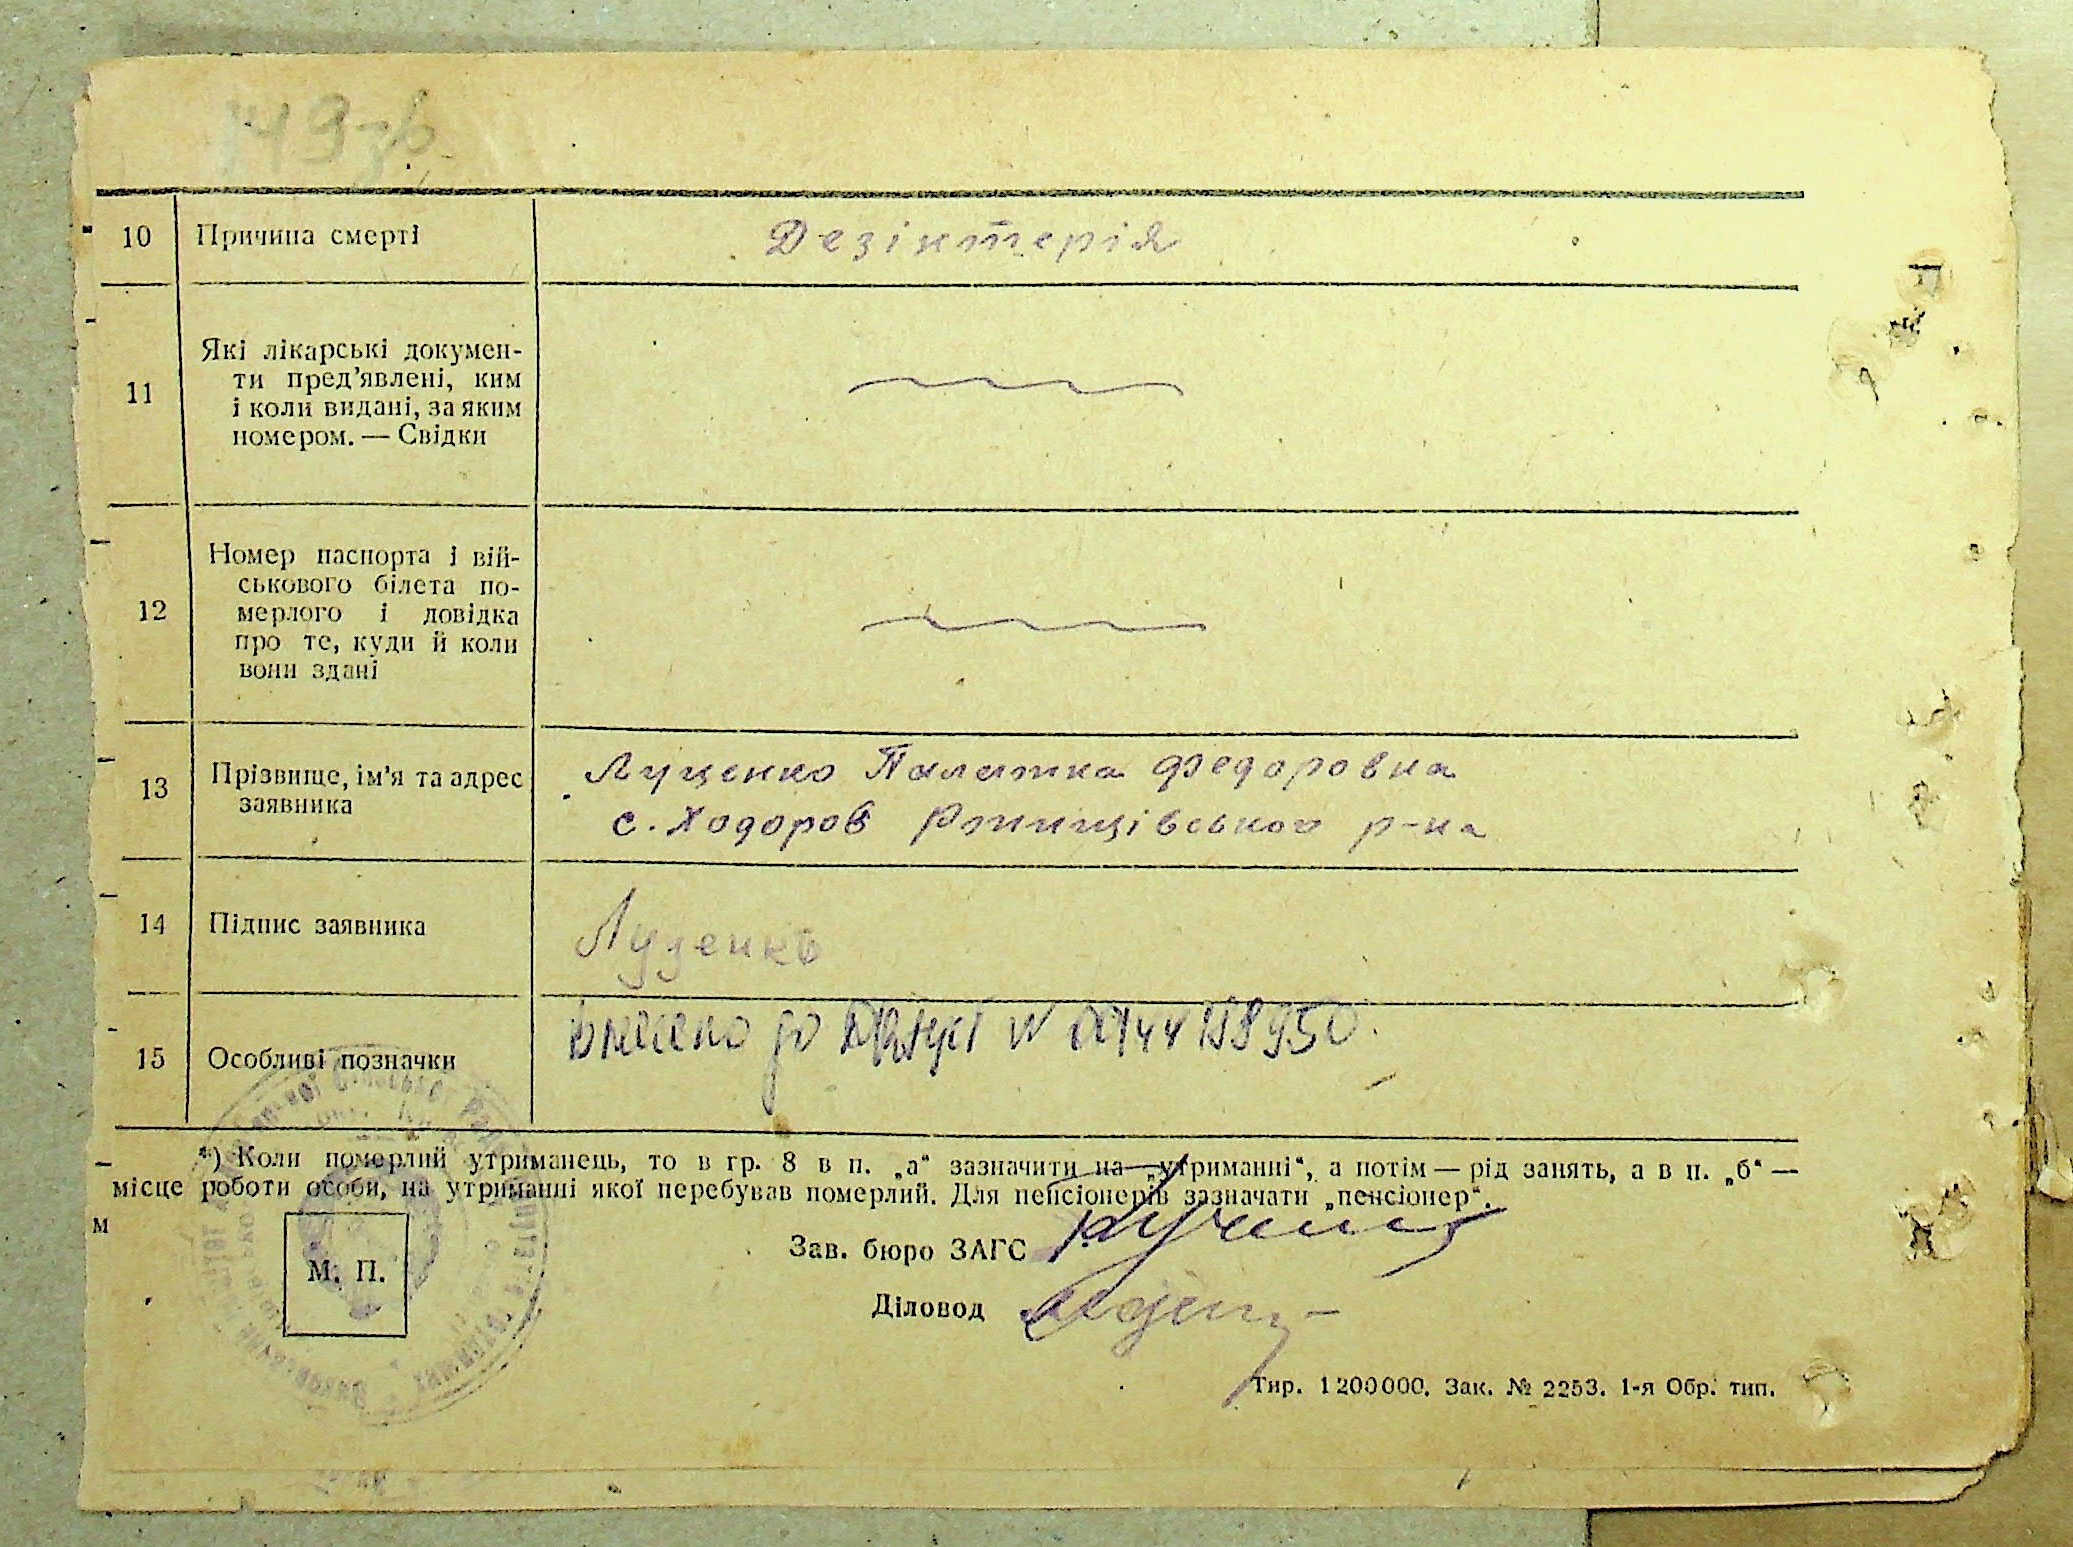 149зв
10 Причина смерті Дезінтерія
11 Які лікарські докумен-
ти пред’явлені, ким
і коли видані, за яким
номером. — Свідки
12 Номер паспорта і вій-
ськового білета по-
мерлого і довідка
про те, куди й коли
вони здані
13 Прізвище, ім’я та адрес
заявника
Луценко Палажка Федоровна
с. Ходоров Ржищівського р-на
14 Підпис заявника Луценко
15 Особливі позначки Внесено до №
*) Коли померлий утриманець, то в гр. 8 в п. „а“ зазначити на „утриманні“, а потім — рід занять, а в п. „б“ —
місце роботи особи, на утриманні якої перебував померлий. Для пенсіонерів зазначати „пенсіонер“.
м
М. П.
Зав. бюро ЗАГС
Діловод
Тир. 1200000. Зак. № 2253. 1-я Обр. тип.